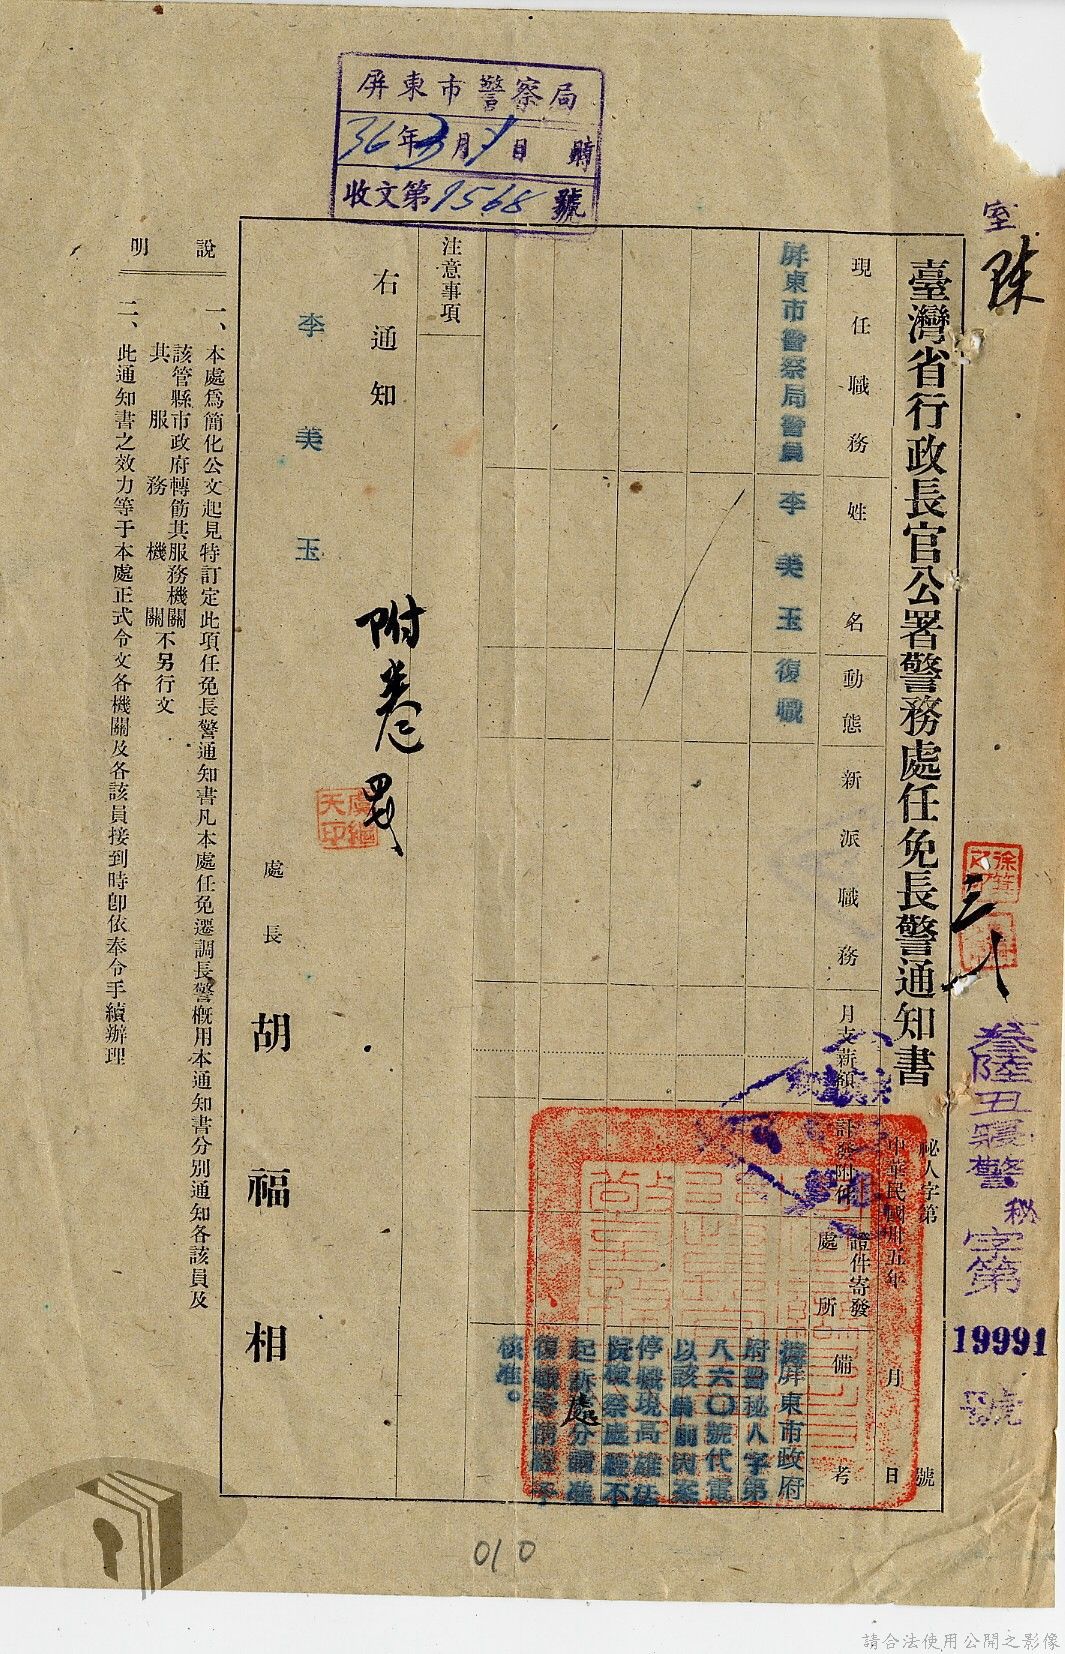 屏東市警察局
36年3月1日 時
收文第9568號
室
陳
三
八
叁陸丑寢警秘字第19991號
臺灣省行政長官公署警務處任免長警通知書
祕人字第 號
中華民國卅五年 月 日
現任職務
姓名
動態
新派職務
月支薪額
計發附件
證件寄發處所
備考
屏東市警察局警員
李美玉
復職
據屏東市政府
府警秘人字第
八六〇號代電
以該員前因案
停職現高雄法
院檢察處經不
起訴處分請准
復職等情經予
核准。
注意事項
右通知
李美玉
附卷
處長 胡福相
說明
一、本處爲簡化公文起見特訂定此項任免長警通知書凡本處任免遷調長警槪用本通知書分別通知各該員及
該管縣市政府轉飭其服務機關
其服務機關
不另行文
二、此通知書之效力等于本處正式令文各機關及各該員接到時卽依奉令手續辦理
010
請合法使用公開之影像